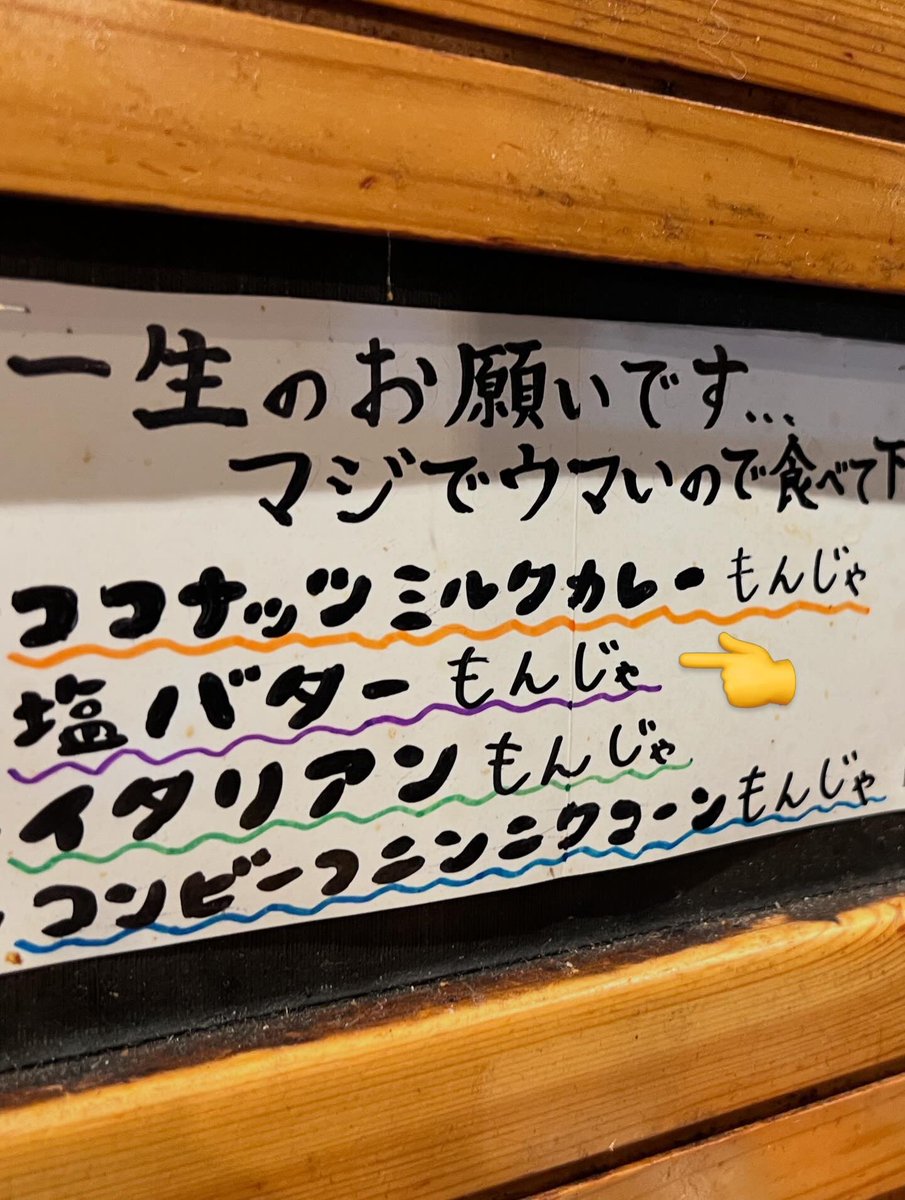 一生のお願いです...
マジでウマいので食べて下
ココナッツミルクカレーもんじゃ
塩バターもんじゃ
イタリアンもんじゃ
コンビーフニンニクコーンもんじゃ